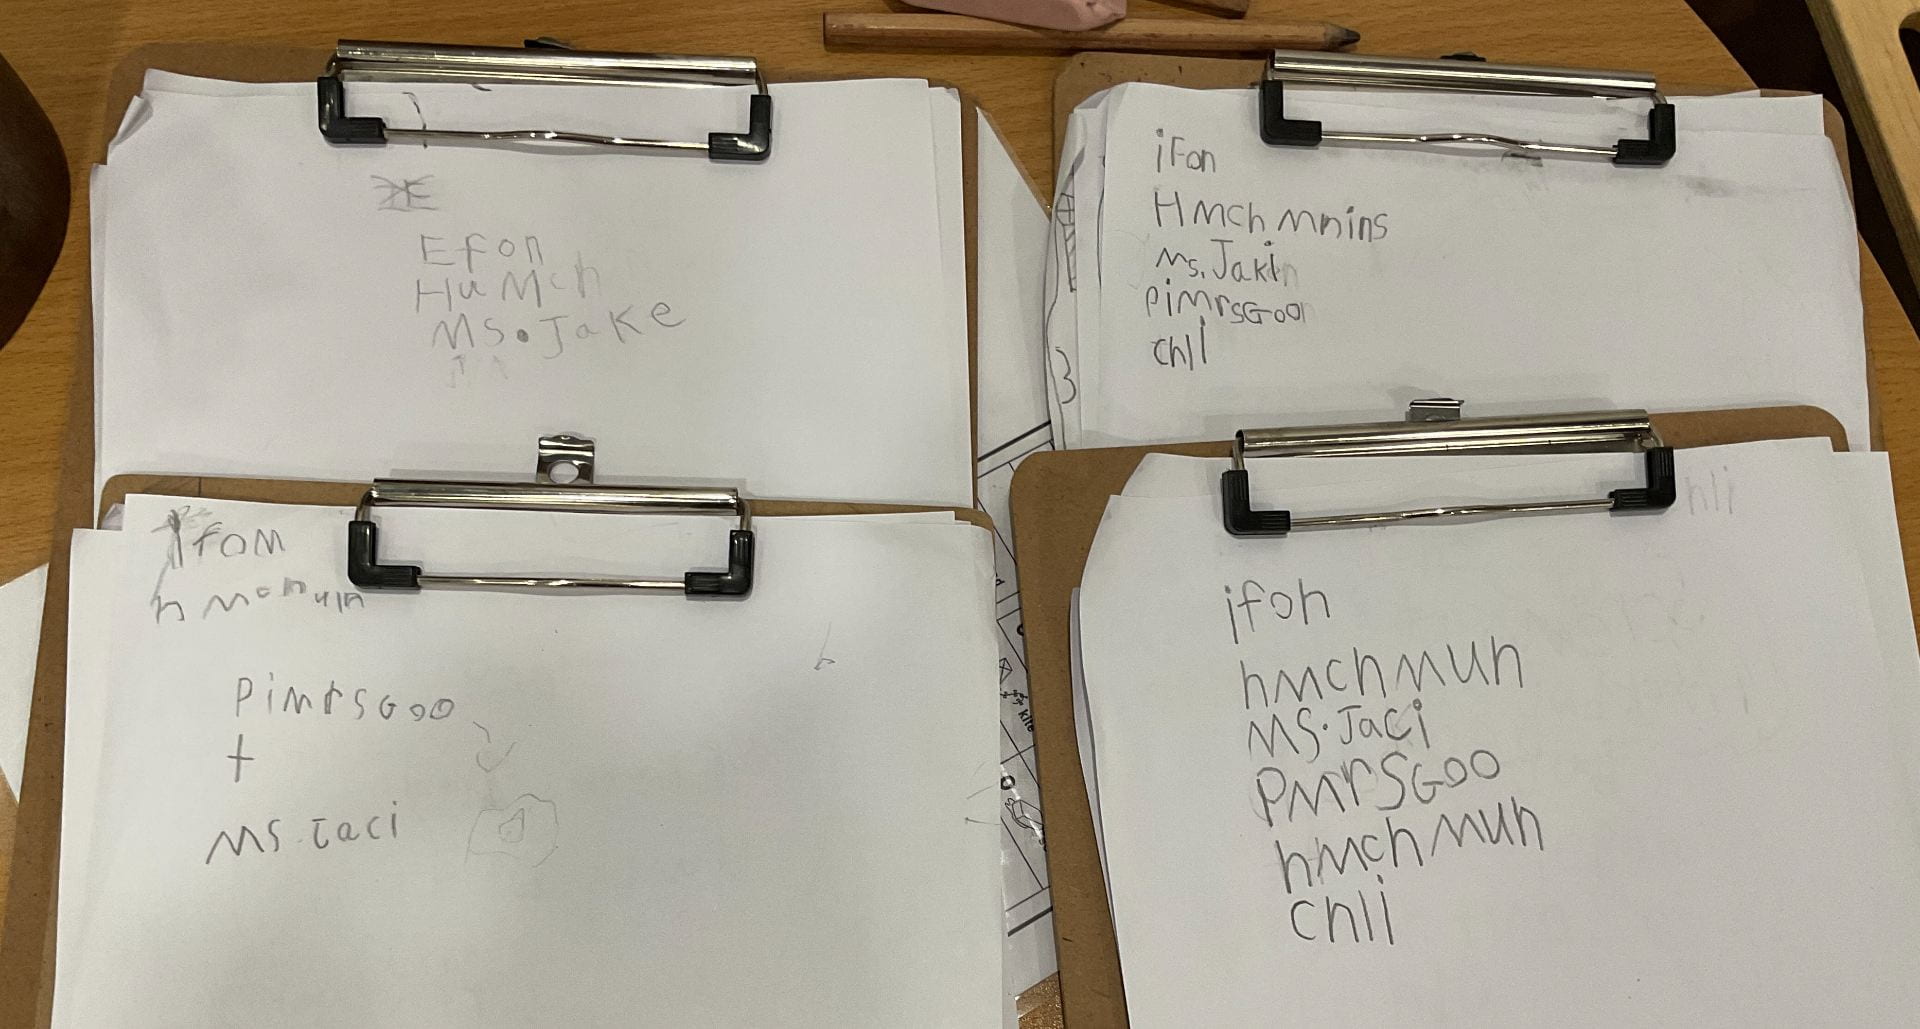 Efon
HuMch
Ms. Jake
iFon
Hmchmnins
Ms. Jakin
PiMrsGoon
chli
fom
PimrsGoo
+
Ms. Jaci
hli
ifon
hmchmun
Ms. Jaci
PmrSGoo
hmchmun
chli
kite